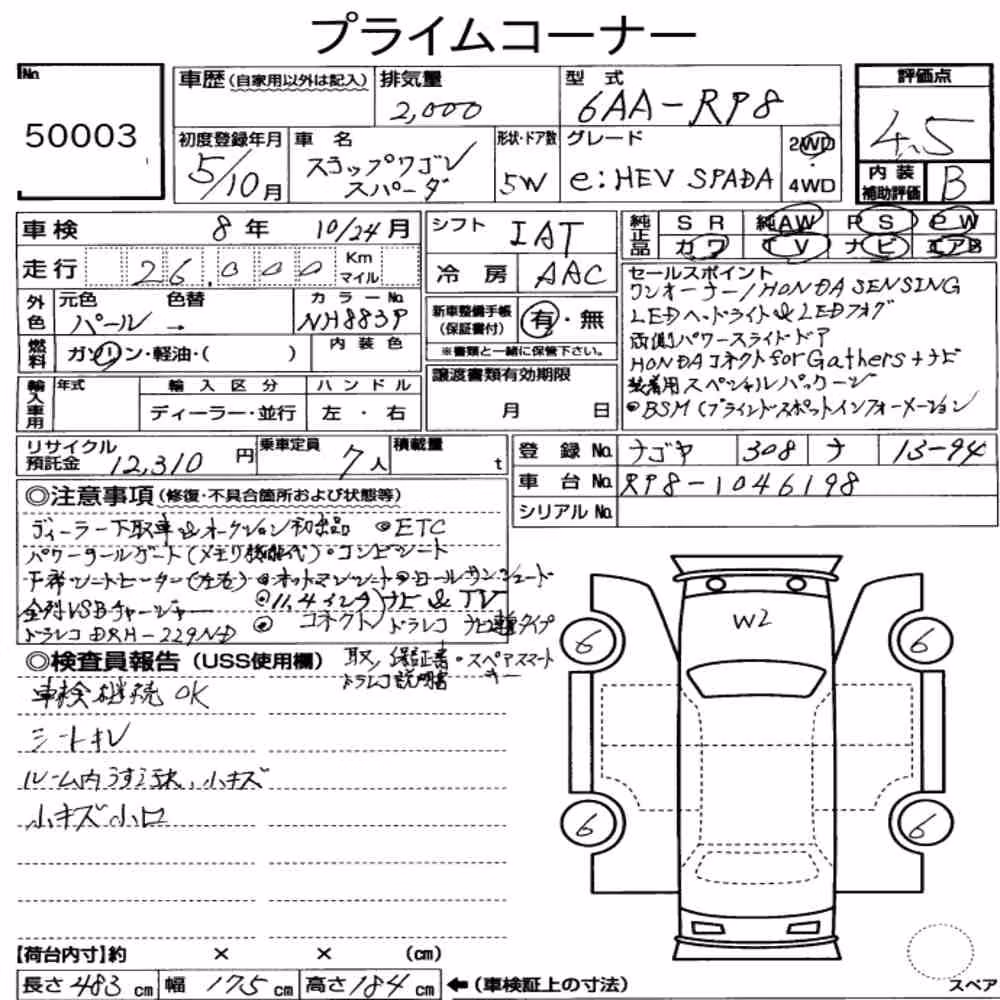 プライムコーナー
No.
50003
車歴 (自家用以外は記入)
排気量
2,000
型式
6AA-RP8
評価点
4.5
初度登録年月
5/10月
車名
ステップワゴン
スパーダ
形状・ドア数
5W
グレード
e:HEV SPADA
2WD
・
4WD
内装
補助評価
B
車検 8年 10/24月
シフト IAT
純正品
SR 純AW PS PW
カワ TV ナビ エアB
走行 26,000 Km マイル
冷房 AAC
外色
元色 色替
パール →
カラーNo.
NH883P
新車整備手帳
(保証書付)
有・無
※書類と一緒に保管下さい。
燃料
ガソリン・軽油・( )
内装色
輸入車用
年式
輸入区分
ディーラー・並行
ハンドル
左・右
譲渡書類有効期限
月 日
セールスポイント
ワンオーナー/HONDA SENSING
LEDヘッドライト&LEDフォグ
両側パワースライドドア
HONDAコネクト for Gathers+ナビ
装着用スペシャルパッケージ
●BSM(ブラインドスポットインフォメーション
リサイクル
預託金 12,310円
乗車定員 7人
積載量 t
登録No. ナゴヤ 308 ナ 13-94
車台No. RP8-1046198
シリアルNo.
◎注意事項(修復・不具合箇所および状態等)
ディーラー下取車&オークション初出品 ◉ETC
パワーテールゲート(メモリ機能付)・コンビシート
シートヒーター(左右) ●オットマンシート ●ロールサンシェード
全列USBチャージャー ◎11.4インチナビ&TV
ドラレコ DRH-229ND ◉ コネクト/ドラレコ ナビ連動タイプ
◎検査員報告(USS使用欄)
取/保証書・スペアスマート
ドラレコ説明書 キー
車検継続OK
シートキレ
ルーム内うすヨゴレ、小キズ
小キズ小凹
W2
6
6
6
6
【荷台内寸】約 × × (cm)
長さ483cm 幅175cm 高さ184cm ←(車検証上の寸法)
スペア